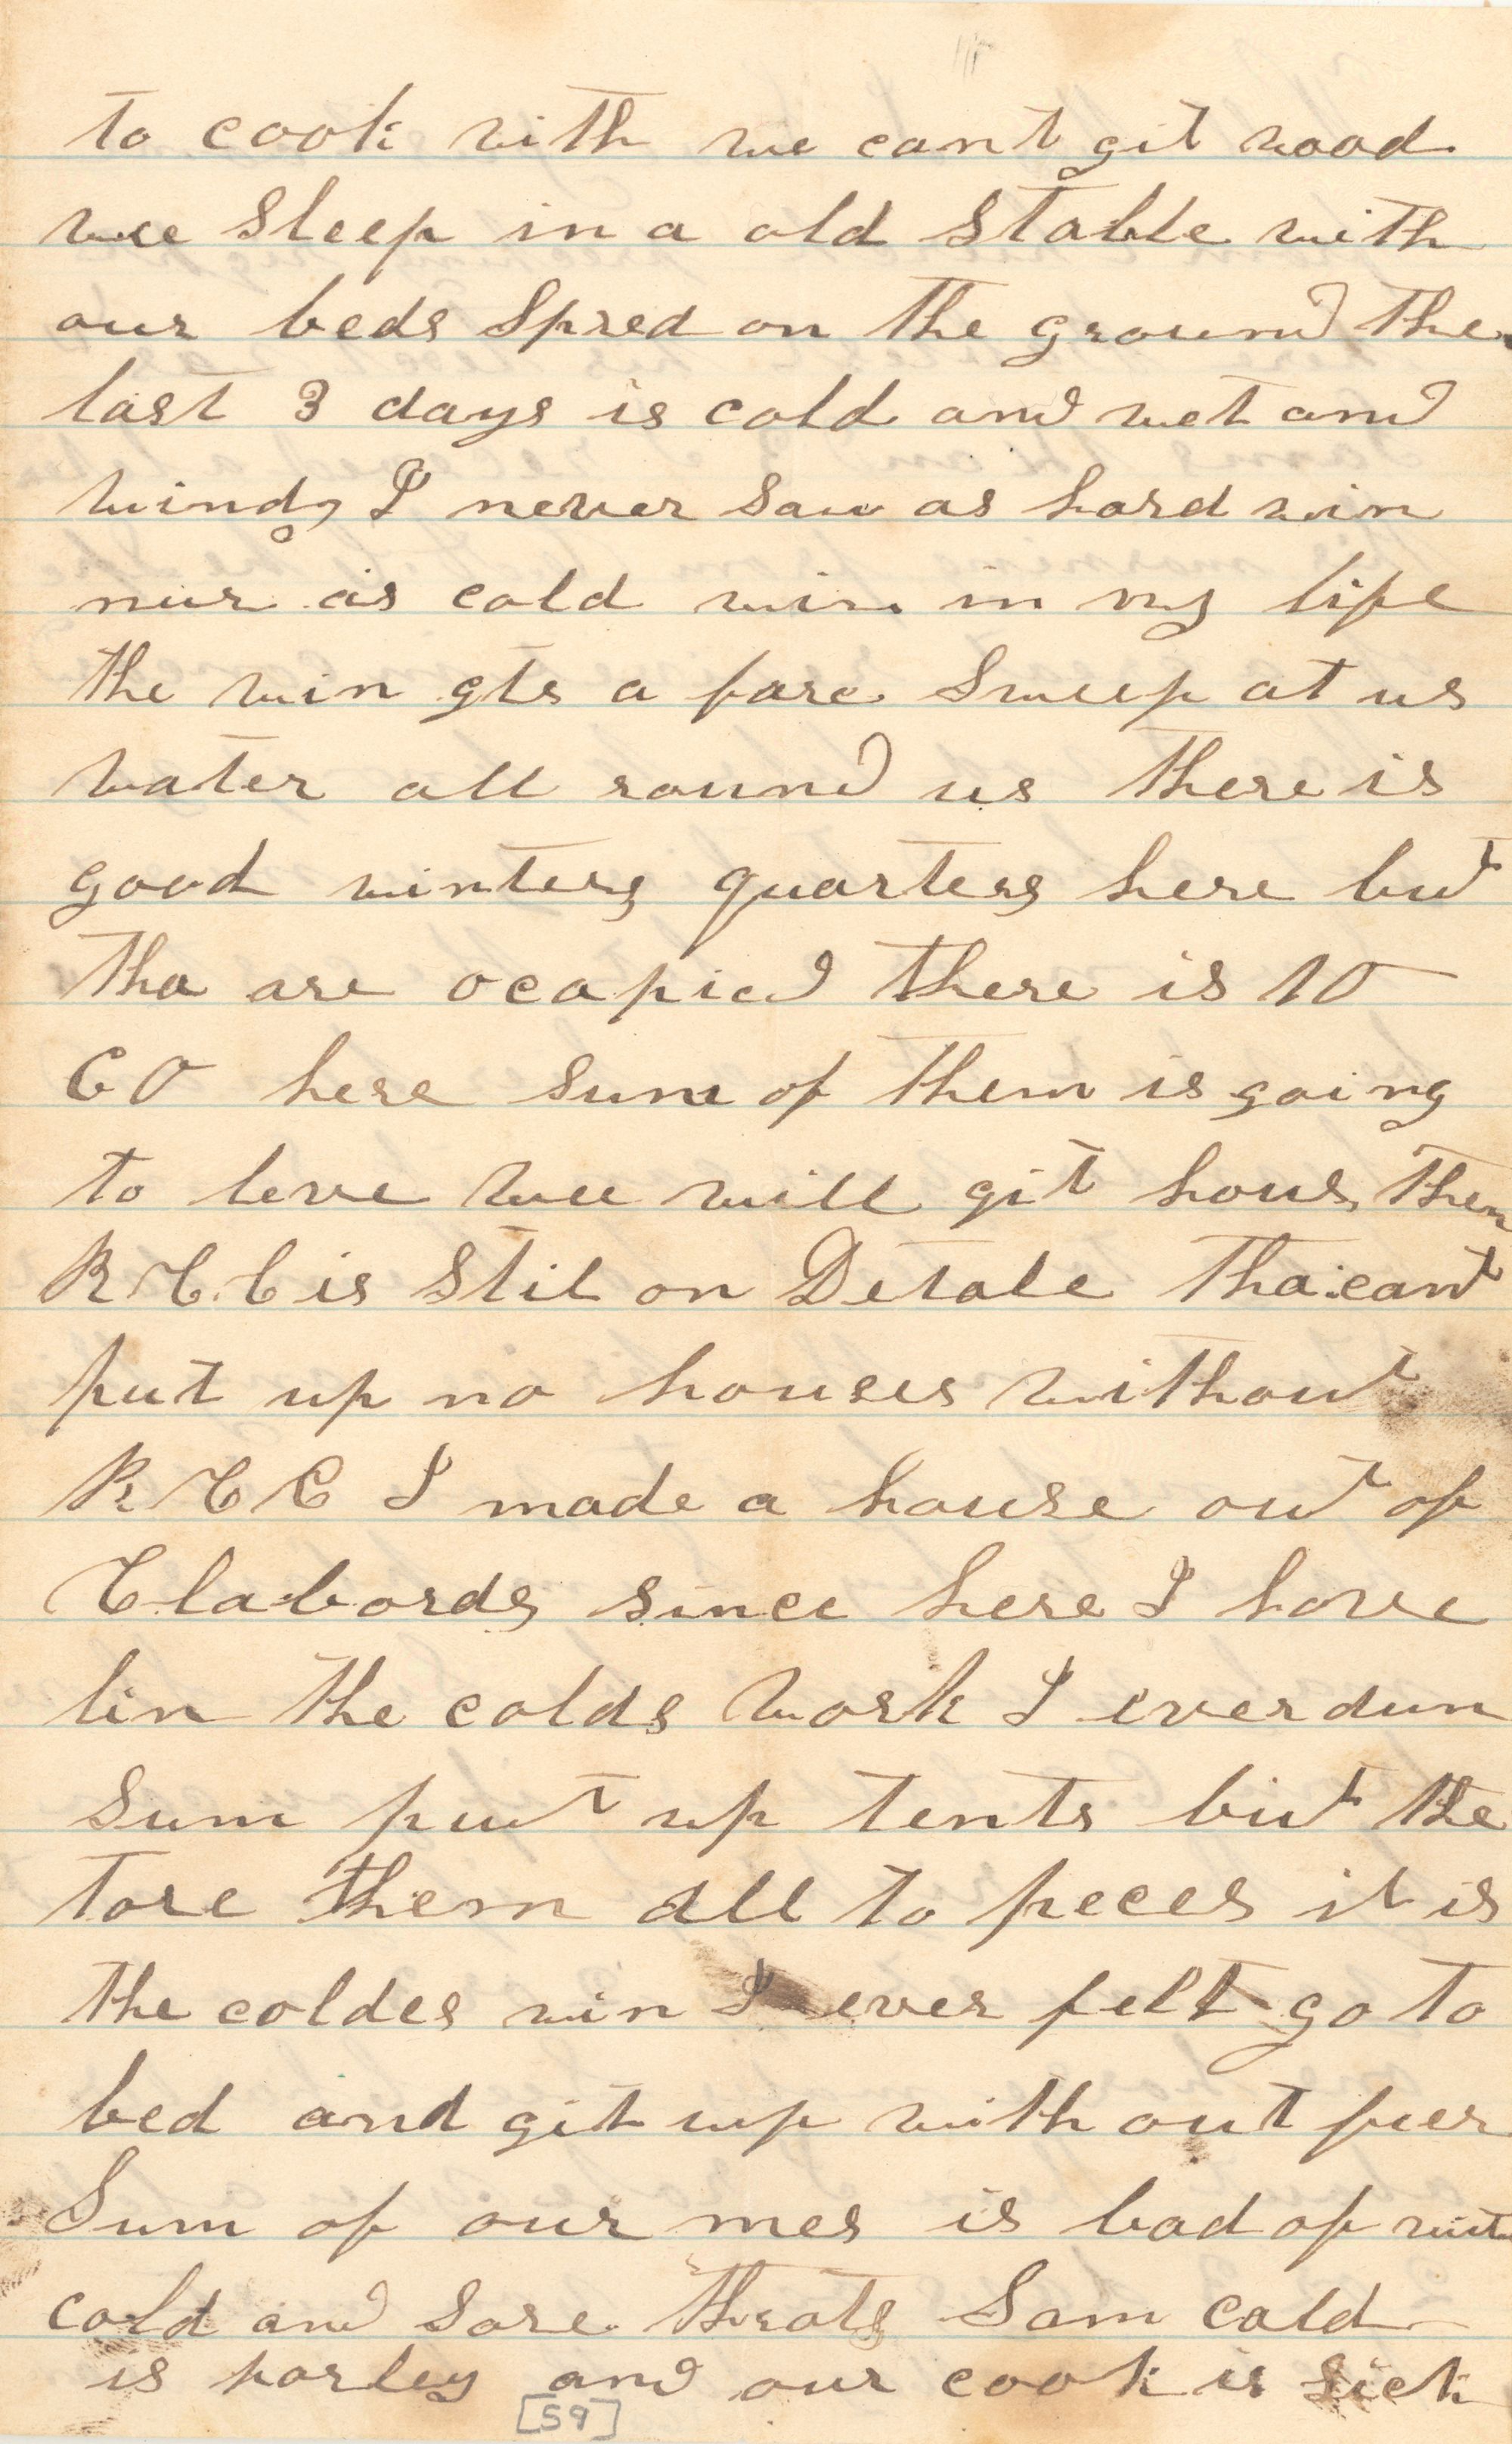 to cook with we cant git wood
wee Sleep in a old Stable with
our beds Spred on the ground the
last 3 days is cold and wet and
windy I never saw as hard win
nur as cold win in my life
the win gts a fare Sweep at us
water all round us there is
good winters quarters here but
tha are ocapied there is 10
CO here sum of them is going
to leve wee will git hous then
R C C is Stil on Detale tha cant
put up no houses without
R C C I made a house out of
Clabords since here I have
bin the colds work I ever dun
Sum put up tents but the
tore them all to peces it is
the coldes win I ever felt go to
bed and git up with out fier
Sum of our mes is bad of wit
cold and sore throts Sam cald
is porley and our cook is sick
[59]